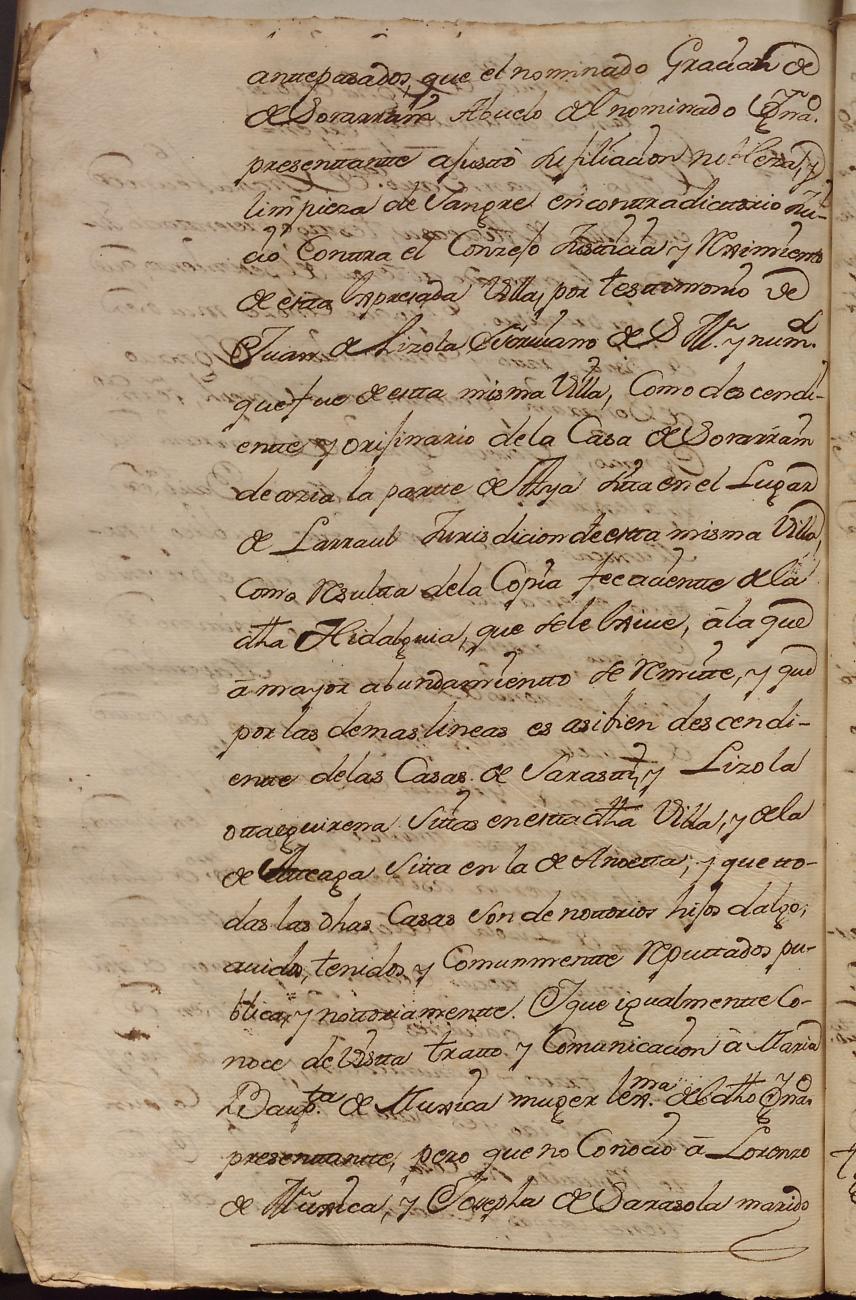 antepasados, que el nominado Gracian de
de Sorarrain Abuelo del nominado Ygnaº.
presenttante ajustò su filiacion nobleza, y
limpieza de Sangre en contradictorio Jui-
cio Contra el Conzejo Justicia y Rexim.ientto
de esta expresada Villa, por testtimonio de
Juan de Lizola Escrivano de S. M. y num.l
que fue de estta misma Villa, Como descendi-
entte y orijinario de la Casa de Sorarrain
de azia la partte de Aya sita en el Lugar
de Larraul Jurisdicion de estta misma Villa
Como Resultta dela Copia feeacientte de la
dha Hidalguia, que se le exive, â la que
â mayor abundamientto se Remitte, y que
por las demas lineas es asibien descendi-
entte delas Casas de Sarastti, y Lizola
ottaeguirena Sittas en estta dha Villa, y de la
de Atteaga Sitta en la de Anoetta; y que tto-
das las dhas Casas son de nottorios hijos dalgo;
avidos, tenidos y Comunmentte Reputtados pu-
blica, y nottoriamentte. Y que igualmentte Co-
noce de Vistta tratto y Comunicacion â Maria
Baup.ta de Munica muger lex.ma del dho Ygnaº.
presenttante, pero que no Conocio â Lorenzo
de Munica, y Josepha de Sarasola marido